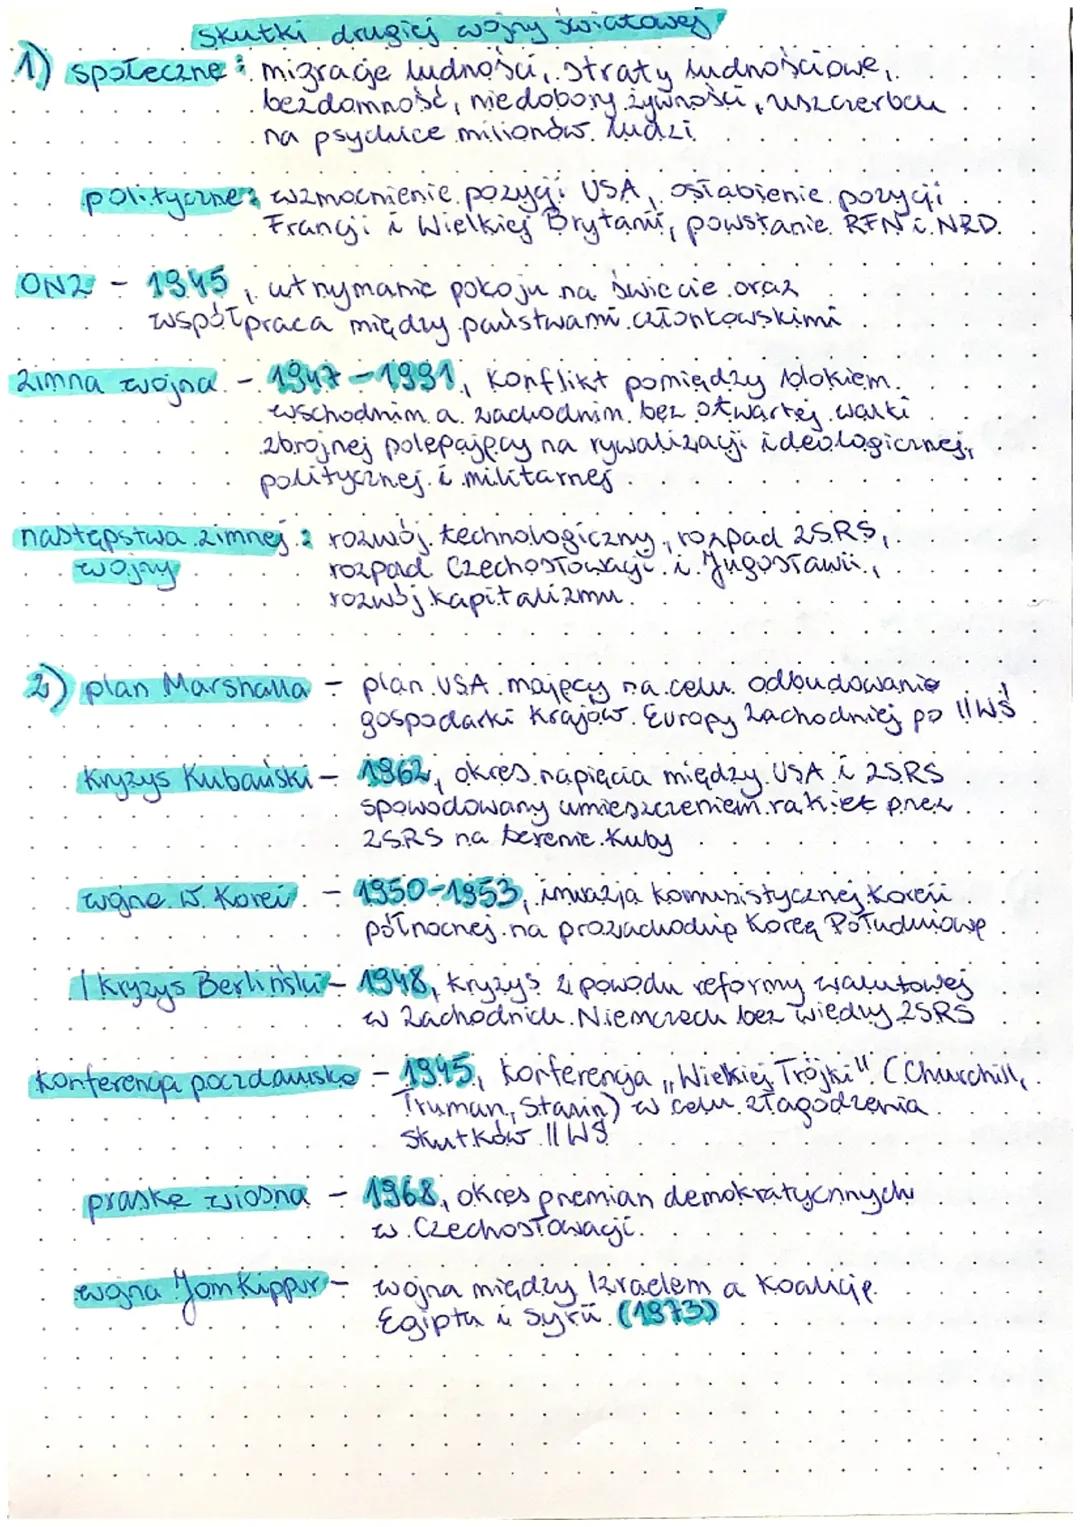 skutki drugiej wojny światowej
1) społeczne : migracje ludności, straty ludnościowe,
bezdomność, niedobory żywności, uszczerbek
na psychice milionów ludzi
polityczne: wzmocnienie pozycji USA, osłabienie pozycji
Francji i Wielkiej Brytanii, powstanie RFN i NRD.
ONZ - 1945, utrzymanie pokoju na świecie oraz
współpraca między państwami członkowskimi
zimna wojna - 1947-1991, konflikt pomiędzy blokiem
wschodnim a zachodnim bez otwartej walki
zbrojnej polegający na rywalizacji ideologicznej,
politycznej i militarnej
następstwa zimnej : rozwój technologiczny, rozpad ZSRS,
wojny rozpad Czechosłowacji i Jugosławii,
rozwój kapitalizmu.
2) plan Marshalla - plan USA mający na celu odbudowanie
gospodarki krajów Europy Zachodniej po IIWŚ
kryzys Kubański - 1962, okres napięcia między USA i ZSRS
spowodowany umieszczeniem rakiet przez
ZSRS na terenie Kuby
wojna w Korei - 1950-1953, inwazja komunistycznej Korei
północnej na prozachodnią Koreę Południową
I kryzys Berliński - 1948, kryzys z powodu reformy walutowej
w Zachodnich Niemczech bez wiedzy ZSRS
Konferencja poczdamska - 1945, konferencja „Wielkiej Trójki" (Churchill,
Truman, Stalin) w celu złagodzenia
skutków IIWŚ
praska wiosna - 1968, okres przemian demokratycznych
w Czechosłowacji.
wojna Jom Kippur - wojna między Izraelem a koalicją
Egiptu i Syrii (1973)